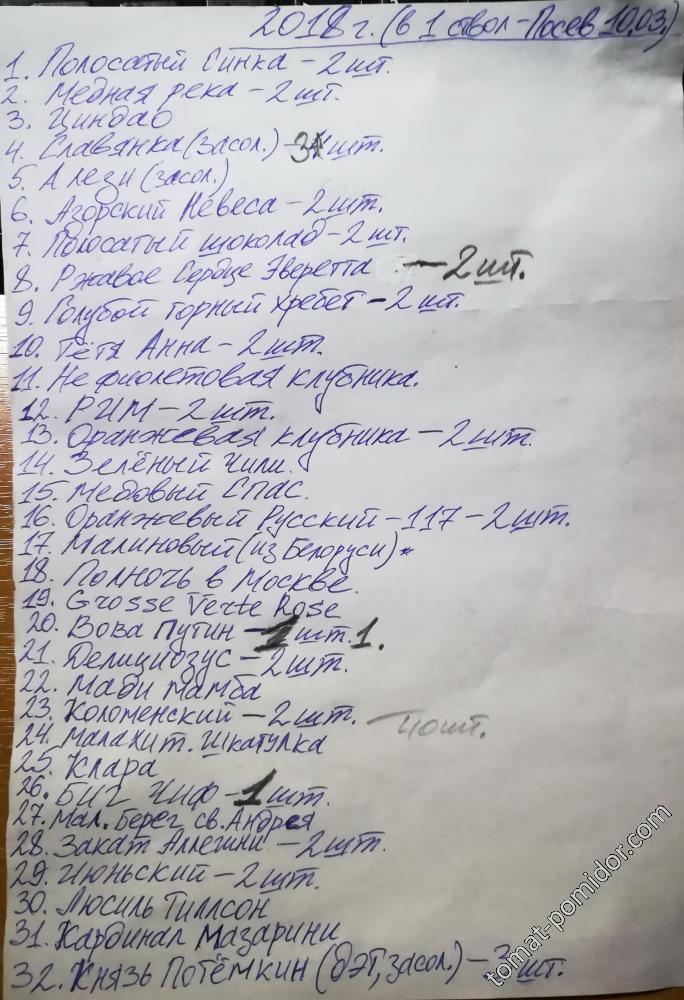 2018 г. (в 1 ствол - Посев 10.03.)
1. Полосатый Синка - 2 шт.
2. Медная река - 2 шт.
3. Циндао
4. Славянка (засол.) - шт.
5. Алези (засол.)
6. Азорский Невеса - 2 шт.
7. Полосатый шоколад - 2 шт.
8. Ржавое Сердце Эверетта - 2 шт.
9. Голубой горный хребет - 2 шт.
10. Тётя Анна - 2 шт.
11. Не фиолетовая клубника.
12. РИМ - 2 шт.
13. Оранжевая клубника - 2 шт.
14. Зелёный Чили.
15. Медовый Спас.
16. Оранжевый Русский - 117 - 2 шт.
17. Малиновый (из Белоруси)*
18. Полночь в Москве.
19. Grosse Verte Rose
20. Вова Путин - 1 шт. 1.
21. Делициозус - 2 шт.
22. Мади Мамба
23. Коломенский - 2 шт.
24. Малахит. Шкатулка
40 шт.
25. Клара
26. БИГ ЧИФ - 1 шт.
27. Мал. Берег св. Андрея
28. Закат Аллегини - 2 шт.
29. Июньский - 2 шт.
30. Люсиль Тиллсон
31. Кардинал Мазарини
32. Князь Потёмкин (дэт, засол.) - 3 шт.
tomat-pomidor.com